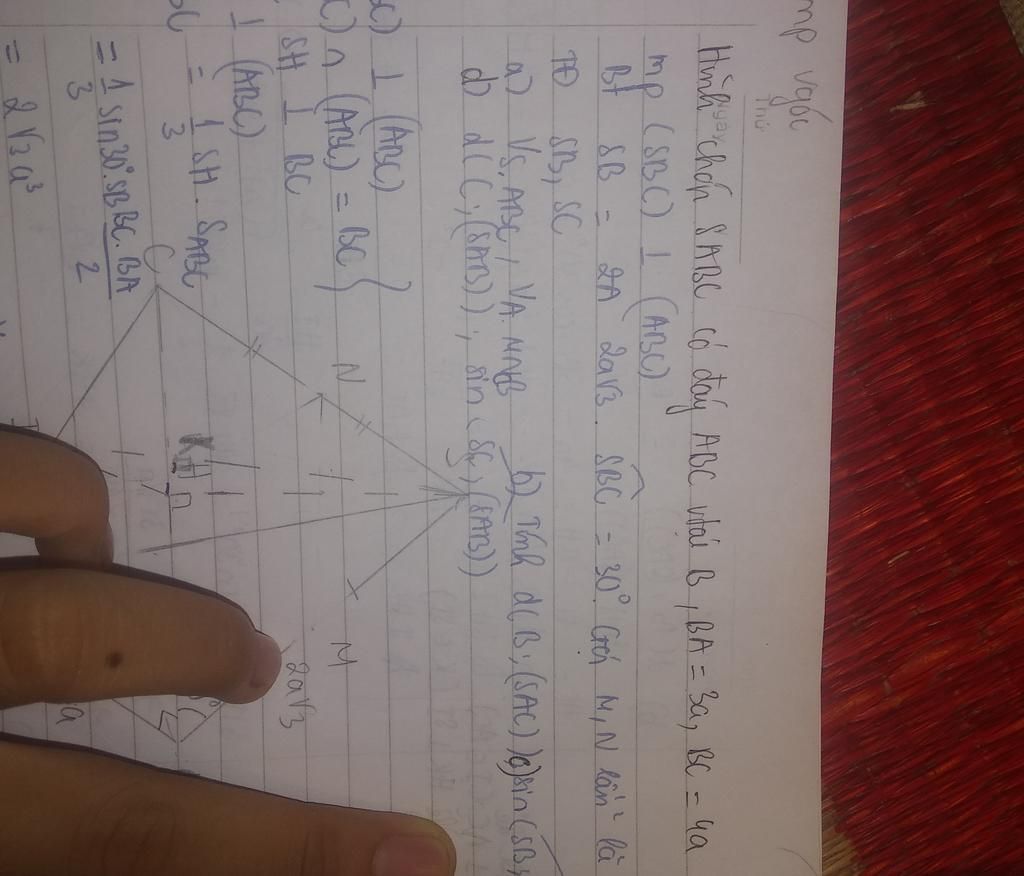 mp
Hình chóp SABC có đáy ABC v tại B, BA = 3a, BC = 4a
mp (SBC) ⊥ (ABC)
Bt SB = 2a√3. SBC = 30°. Gọi M, N lần² là
TĐ SB, SC
a) VS.ABC, VA.MNCB b) Tính d(B; (SAC)) c) sin(SB,
d) d(C; (SAB)); sin(SC; (SAB))
⊥ (ABC)
∩ (ABC) = BC }
SH ⊥ BC
⊥ (ABC)
= 1/3 SH. SABC
= 1/3 sin30°. SB BC. BA/2
= 2√3 a³
S
M
N
C
K
H
2a√3
a